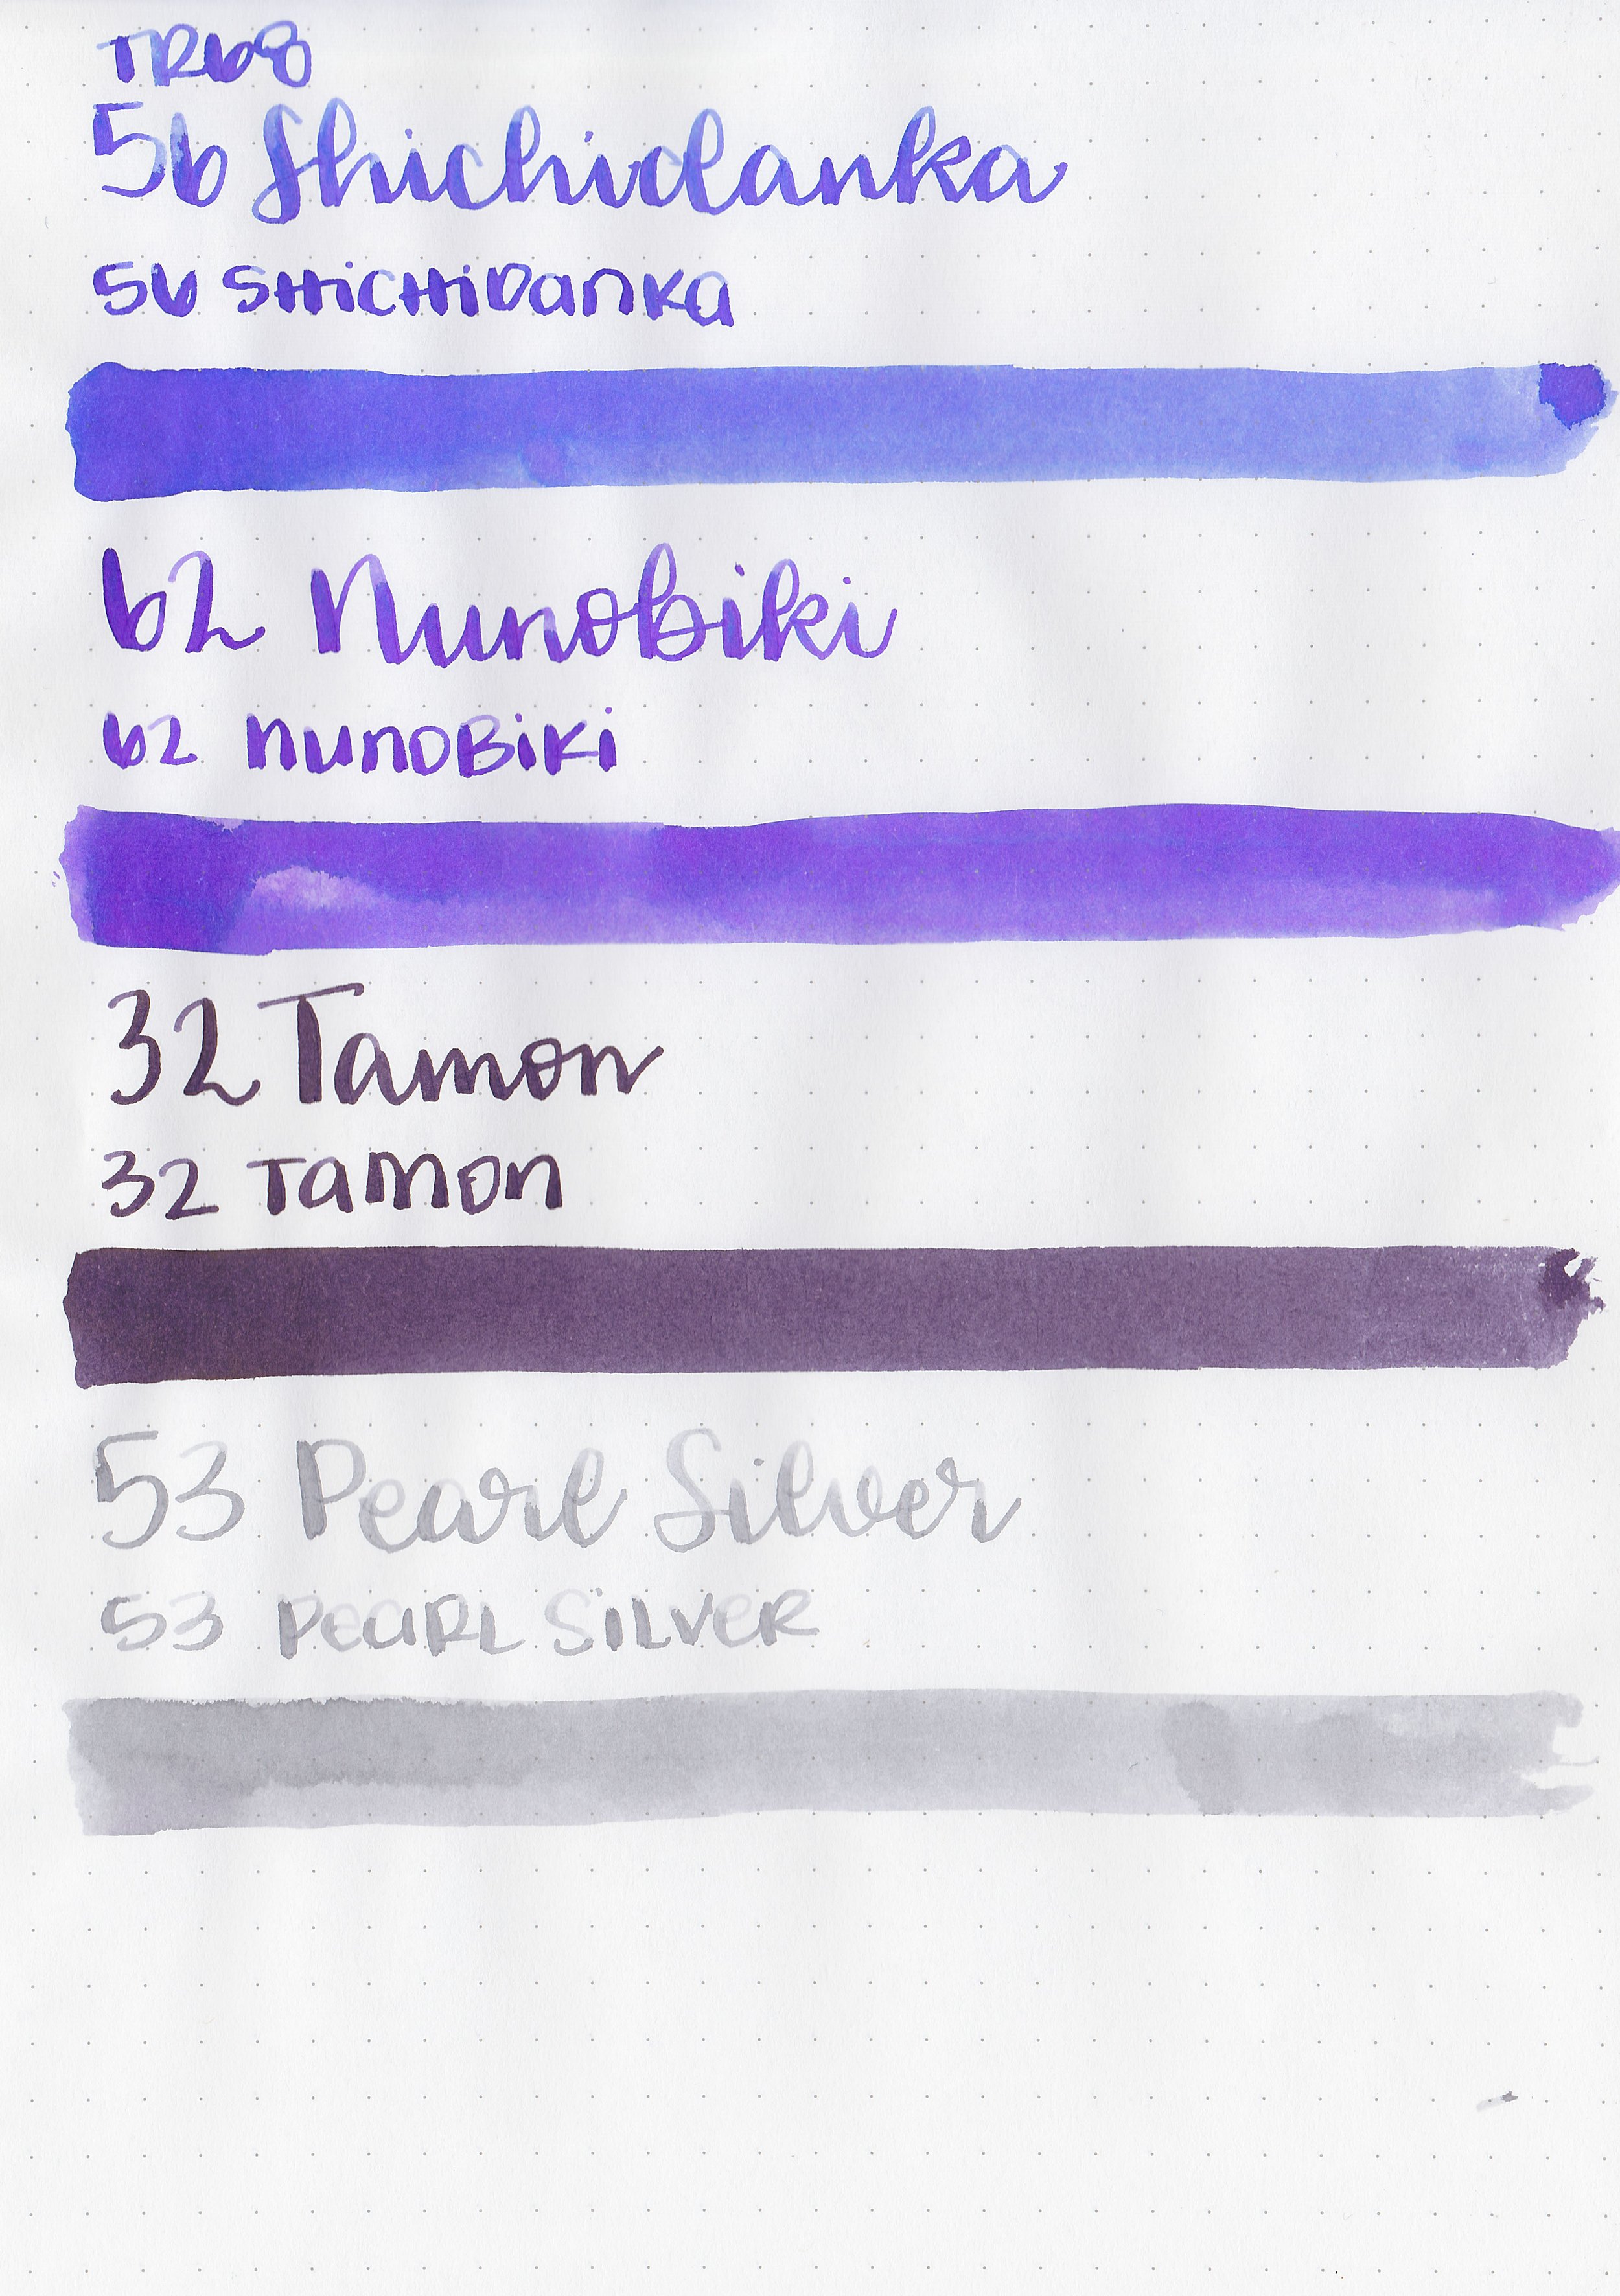 TR68
56 Shichidanka
56 SHiCHiDanKa
62 Nunobiki
62 nunoBiKi
32 Tamon
32 Tamon
53 Pearl Silver
53 PeaRL SiLVeR